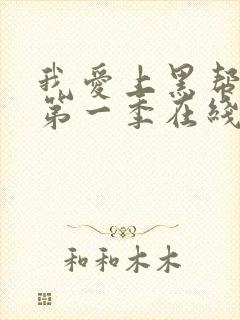 我爱上黑帮
第一季在线
和和木木